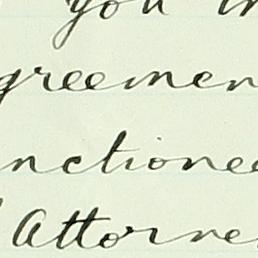 you in
greemen
nctionee
Attorne